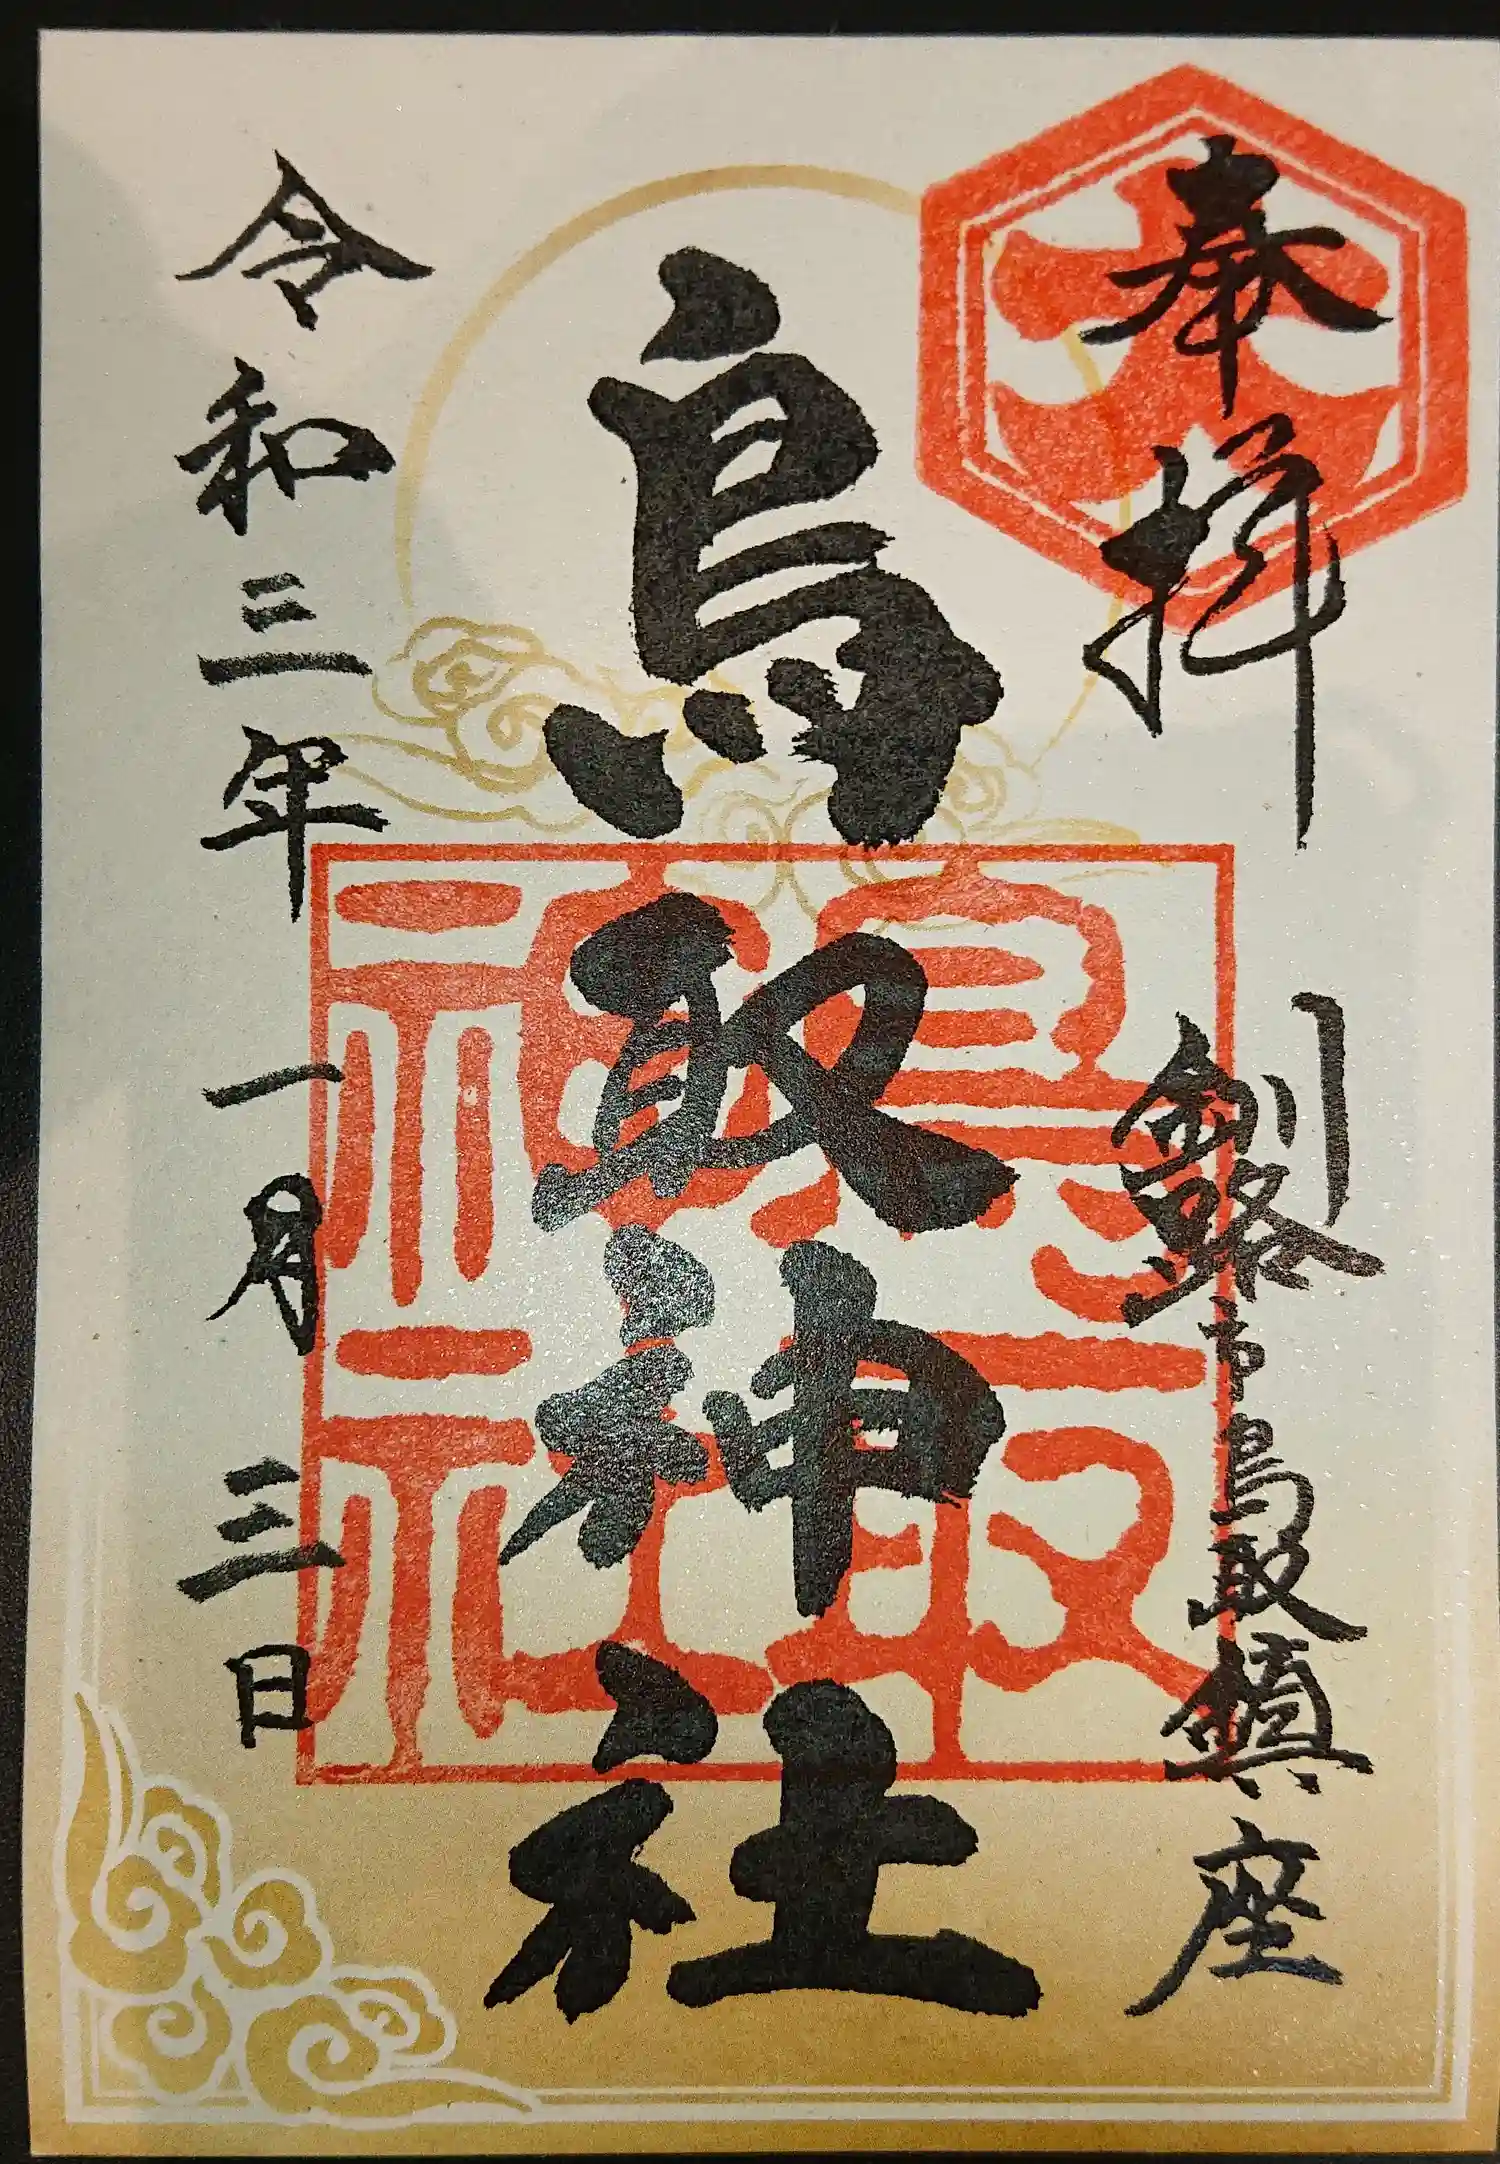 奉拝
釧路市鳥取鎮座
鳥取神社
令和三年一月三日
鳥取
神社